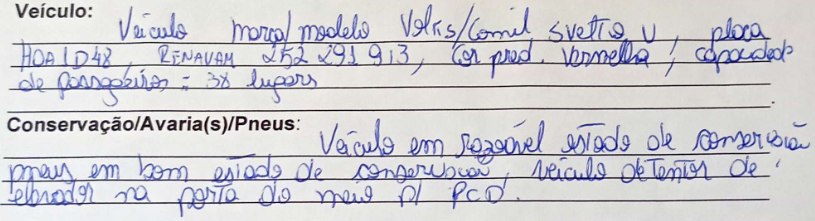 Veículo:
Veículo marca/modelo Volks/Comil Svelto U, placa
HOA1D48, RENAVAM 252 291 913, Cor pred. Vermelha, capacidade
de passageiros = 38 lugares
Conservação/Avaria(s)/Pneus:
Veículo em razoável estado de conservação
pneus em bom estado de conservação, veículo detentor de
elevador na porta do meio p/ PCD.